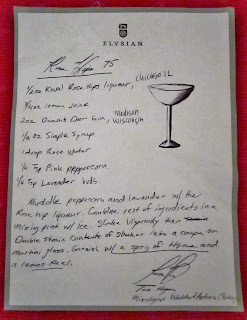 ELYSIAN
Rose 75
1/2 oz Royal Rose Hips liqueur, Chicago IL
3/4 oz lemon Juice
2 oz Death's Door Gin, Madison Wisconsin
1/4 oz Simple Syrup
1 drop Rose Water
1/4 tsp Pink peppercorn
1/4 tsp Lavender buds
Muddle peppercorn and lavender w/ the
Rose hip liqueur. Combine rest of ingredients in a
mixing pint w/ ice. Shake Vigorously then
Double strain contents of shaker into a coupe or
martini glass. Garnish w/ a sprig of thyme and
a lemon peel.
Mixologist Waldorf Astoria Chicago